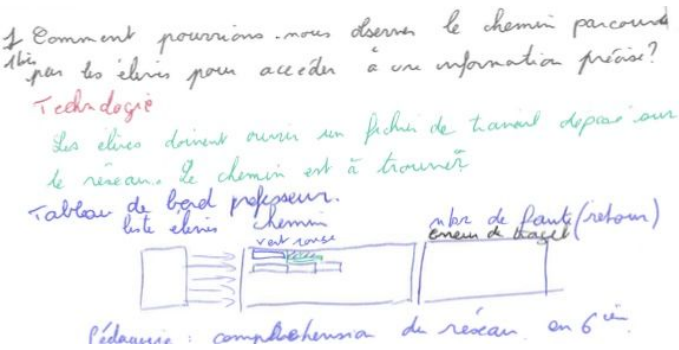 1 Comment pourrions-nous observer le chemin parcouru
1bis par les élèves pour accéder à une information précise?
Technologie
Les élèves doivent ouvrir un fichier de travail déposé sur
le réseau. Le chemin est à trouver
Tableau de bord professeur.
liste élèves chemin nbre de faute (retour)
vert rouge erreur de trajet
Pédagogie : compréhension du réseau en 6ième